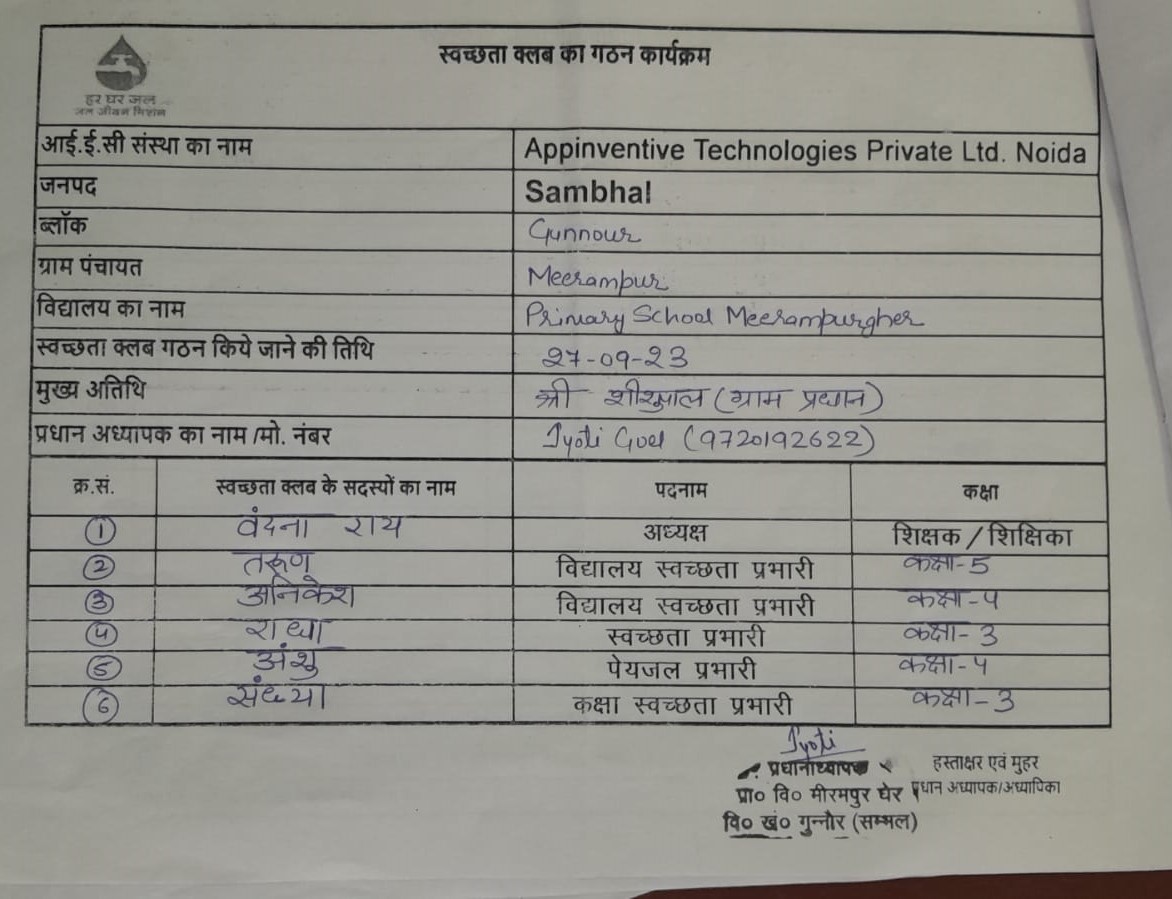 स्वच्छता क्लब का गठन कार्यक्रम
हर घर जल
जल जीवन मिशन
आई.ई.सी संस्था का नाम Appinventive Technologies Private Ltd. Noida
जनपद Sambhal
ब्लॉक Gunnour
ग्राम पंचायत Meerampur
विद्यालय का नाम Primary School Meerampurgher
स्वच्छता क्लब गठन किये जाने की तिथि 27-09-23
मुख्य अतिथि श्री (ग्राम प्रधान)
प्रधान अध्यापक का नाम /मो. नंबर Jyoti Goel (9720192622)
क्र.सं. स्वच्छता क्लब के सदस्यों का नाम पदनाम कक्षा
1 वंदना राय अध्यक्ष शिक्षक / शिक्षिका
2 तरूण विद्यालय स्वच्छता प्रभारी कक्षा-5
3 अनिकेश विद्यालय स्वच्छता प्रभारी कक्षा-4
4 राधा स्वच्छता प्रभारी कक्षा-3
5 अंशु पेयजल प्रभारी कक्षा-4
6 संध्या कक्षा स्वच्छता प्रभारी कक्षा-3
Jyoti
प्रधानाध्यापक
प्रा० वि० मीरमपुर घेर
वि० खं० गुन्नौर (सम्भल)
हस्ताक्षर एवं मुहर
प्रधान अध्यापक/अध्यापिका